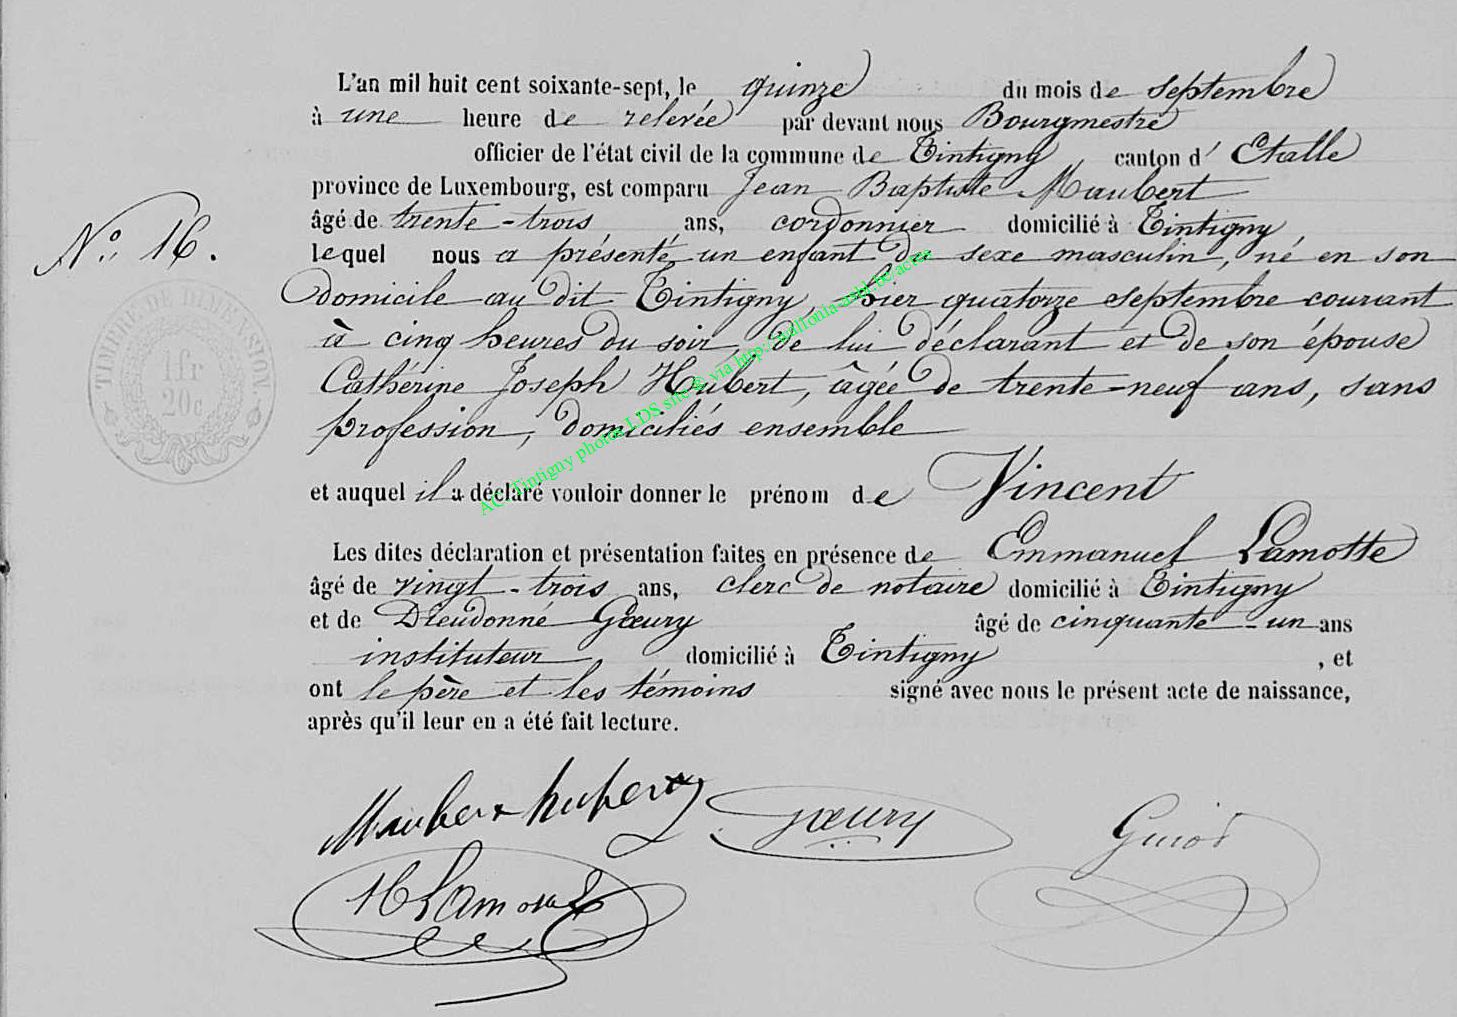 L'an mil huit cent soixante-sept, le quinze du mois de septembre
à une heure de relevée par devant nous Bourgmestre
officier de l'état civil de la commune de Tintigny, canton d' Etalle
province de Luxembourg, est comparu Jean Baptiste Maubert
âgé de trente-trois ans, cordonnier domicilié à Tintigny,
lequel nous a présenté un enfant du sexe masculin, né en son
N.° 16.
domicile au dit Tintigny, hier quatorze septembre courant
à cinq heures du soir, de lui déclarant et de son épouse
Cathérine Joseph Hubert, âgée de trente-neuf ans, sans
profession, domiciliés ensemble
TIMBRE DE DIMENSION
1fr
20c
et auquel il a déclaré vouloir donner le prénom de Vincent
Les dites déclaration et présentation faites en présence de Emmanuel Lamotte
âgé de vingt-trois ans, clerc de notaire domicilié à Tintigny
et de Dieudonné Gœury âgé de cinquante-un ans
instituteur domicilié à Tintigny, et
ont le père et les témoins signé avec nous le présent acte de naissance,
après qu'il leur en a été fait lecture.
Maubert hubert Gœury